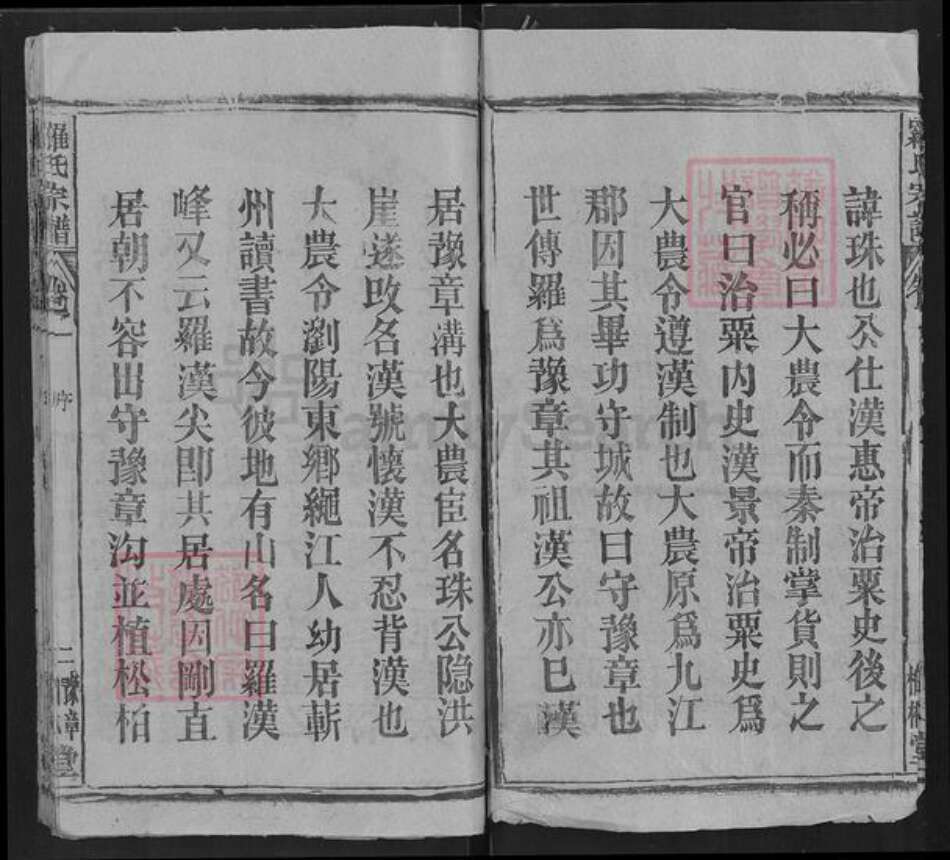 諱珠也公仕漢惠帝治粟史後之
稱必曰大農令而秦制掌貨則之
官曰治粟內史漢景帝治粟史爲
大農令遵漢制也大農原爲九江
郡因其畢功守城故曰守豫章也
世傳羅爲豫章其祖漢公亦巳漢
居豫章溝也大農臣名珠公隐洪
崖遂改名漢號懷漢不忍背漢也
大農令瀏陽東鄉繩江人幼居蘄
州讀書故今彼地有山名曰羅漢
峰又云羅漢尖卽其居處因剛直
居朝不容出守豫章沟並植松柏
羅氏宗譜
卷一
序
二
豫章堂
FamilySearch